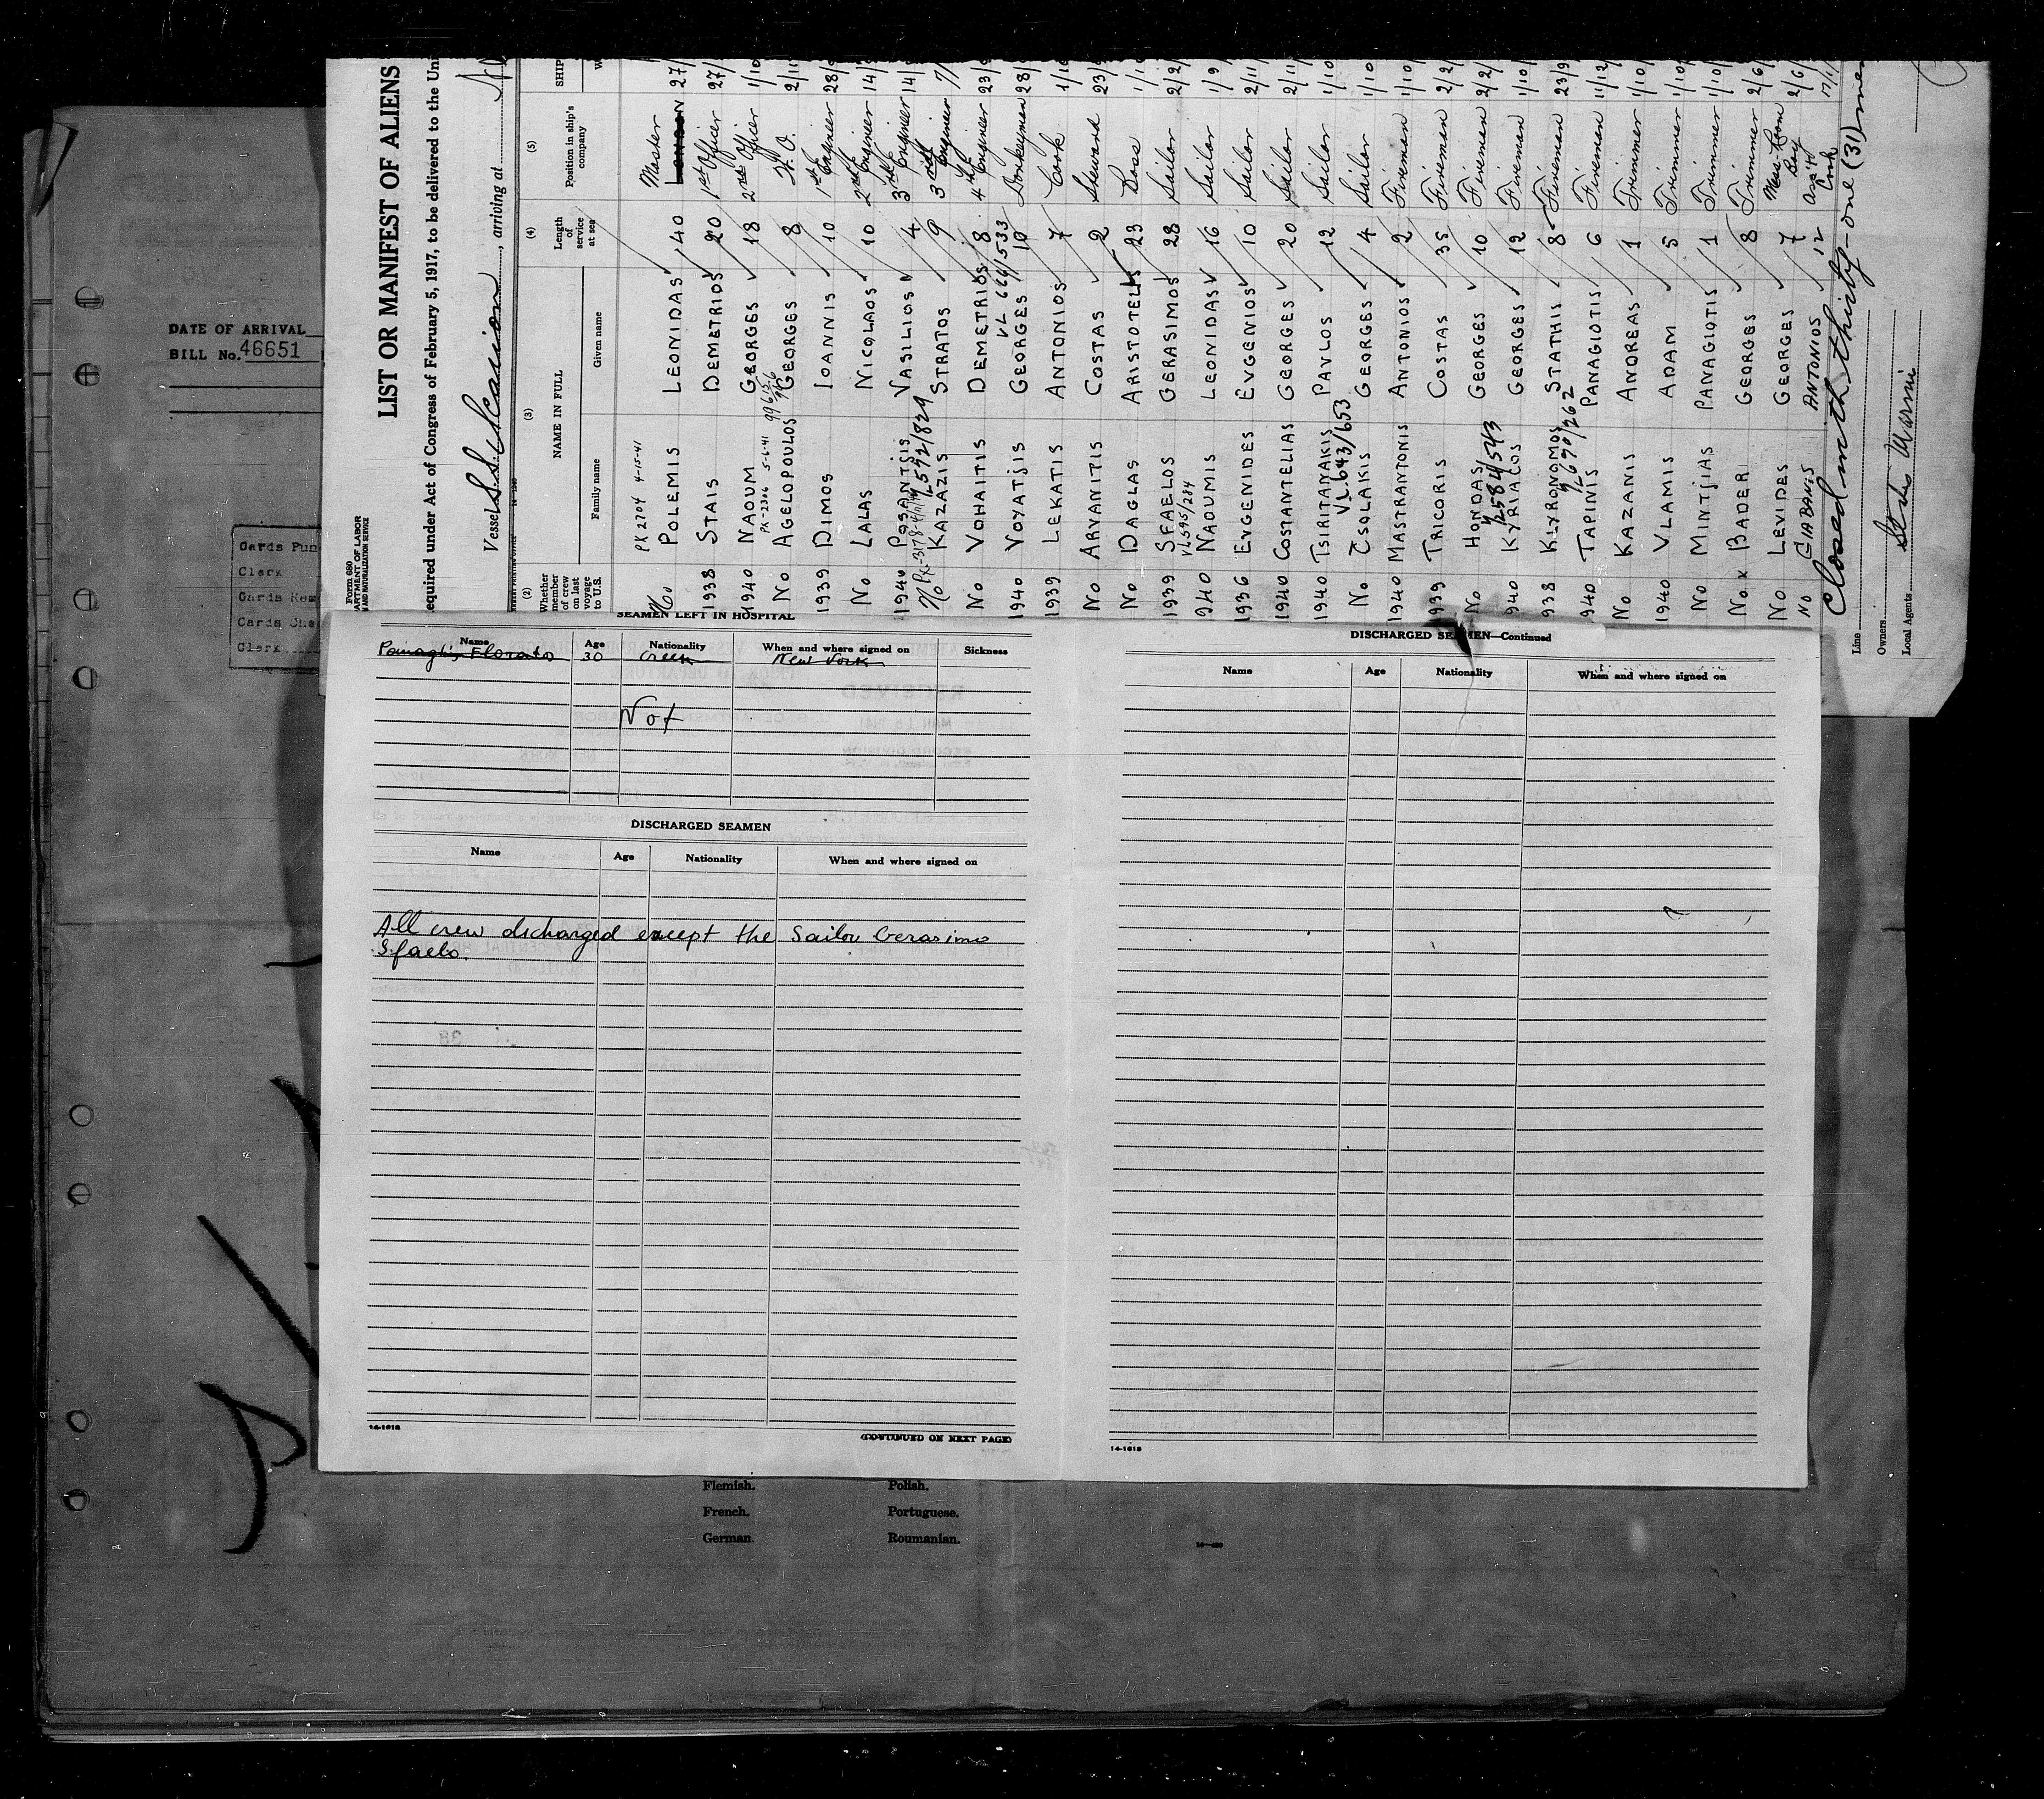 DATE OF ARRIVAL
BILL No. 46651
Cards Pun
Clerk
Cards Rem
Cards Che
Clerk
Form 680
LIST OR MANIFEST OF ALIENS
equired under Act of Congress of February 5, 1917, to be delivered to the Uni
Vessel S.S. , arriving at
(2) (3) (4) (5)
Whether member of crew on last voyage to U.S. NAME IN FULL Length of service at sea Position in ship's company SHIP
Family name Given name
PX 2704 4-15-41
No POLEMIS LEONIDAS 40 Master 27/
1938 STAIS DEMETRIOS 20 1st Officer 27/
1940 NAOUM GEORGES 18 2nd Officer 1/10
PX-2306 5-6-41
No AGELOPOULOS GEORGES 8 2/11
1939 DIMOS IOANNIS 10 1st Engineer 28/
No LALAS NICOLAOS 10 2nd Engineer 14/
1940 VASILIOS 4 3rd Engineer 14/
No KAZAZIS STRATOS 9 3rd Engineer 7/
No VOHAITIS DEMETRIOS 8 4th Engineer 23/9
VL 664/533
1940 VOYATJIS GEORGES 10 Donkeyman 28/
1939 LEKATIS ANTONIOS 7 Cook 1/10
No ARVANITIS COSTAS 2 Steward 23/
No DAGLAS ARISTOTELIS 23 Boss 1/10
1939 SFAELOS GERASIMOS 28 Sailor 2/2/
VL 595/284
940 NAOUMIS LEONIDAS 16 Sailor 1/9
1936 EVGENIDES EVGENIOS 10 Sailor 2/11
1940 COSTANTELIAS GEORGES 20 Sailor 2/11
1940 TSIRITANAKIS PAVLOS 12 Sailor 1/10
VL 643/653
No TSOLAKIS GEORGES 4 Sailor 1/10
1940 MASTRANTONIS ANTONIOS 2 Fireman 1/10
939 TRICORIS COSTAS 35 Fireman 2/2
No HONDAS GEORGES 10 Fireman 2/2
VL 584/543
940 KYRIACOS GEORGES 12 Fireman 1/10
938 KLYRONOMOS STATHIS 8 Fireman 23/9
VL 670/262
940 TAPINIS PANAGIOTIS 6 Fireman 11/12
No KAZANIS ANDREAS 1 Trimmer 1/10
1940 VLAMIS ADAM 5 Trimmer 1/10
No MINTJIAS PANAGIOTIS 1 Trimmer 1/10
No x BADER GEORGES 8 Trimmer 2/6
No LEVIDES GEORGES 7 Mess Room Boy 2/6
No GIABANIS ANTONIOS 12 Ass't Cook 17/1
Closed with thirty-one (31) men
Line
Owners
Local Agents
SEAMEN LEFT IN HOSPITAL
Name Age Nationality When and where signed on Sickness
Panaghis Florato 30 Greek New York
Not
DISCHARGED SEAMEN
Name Age Nationality When and where signed on
All crew discharged except the Sailor Gerasimo
Sfaelo.
14-1618
(CONTINUED ON NEXT PAGE)
DISCHARGED SEAMEN—Continued
Name Age Nationality When and where signed on
14-1618
Flemish. Polish.
French. Portuguese.
German. Roumanian.